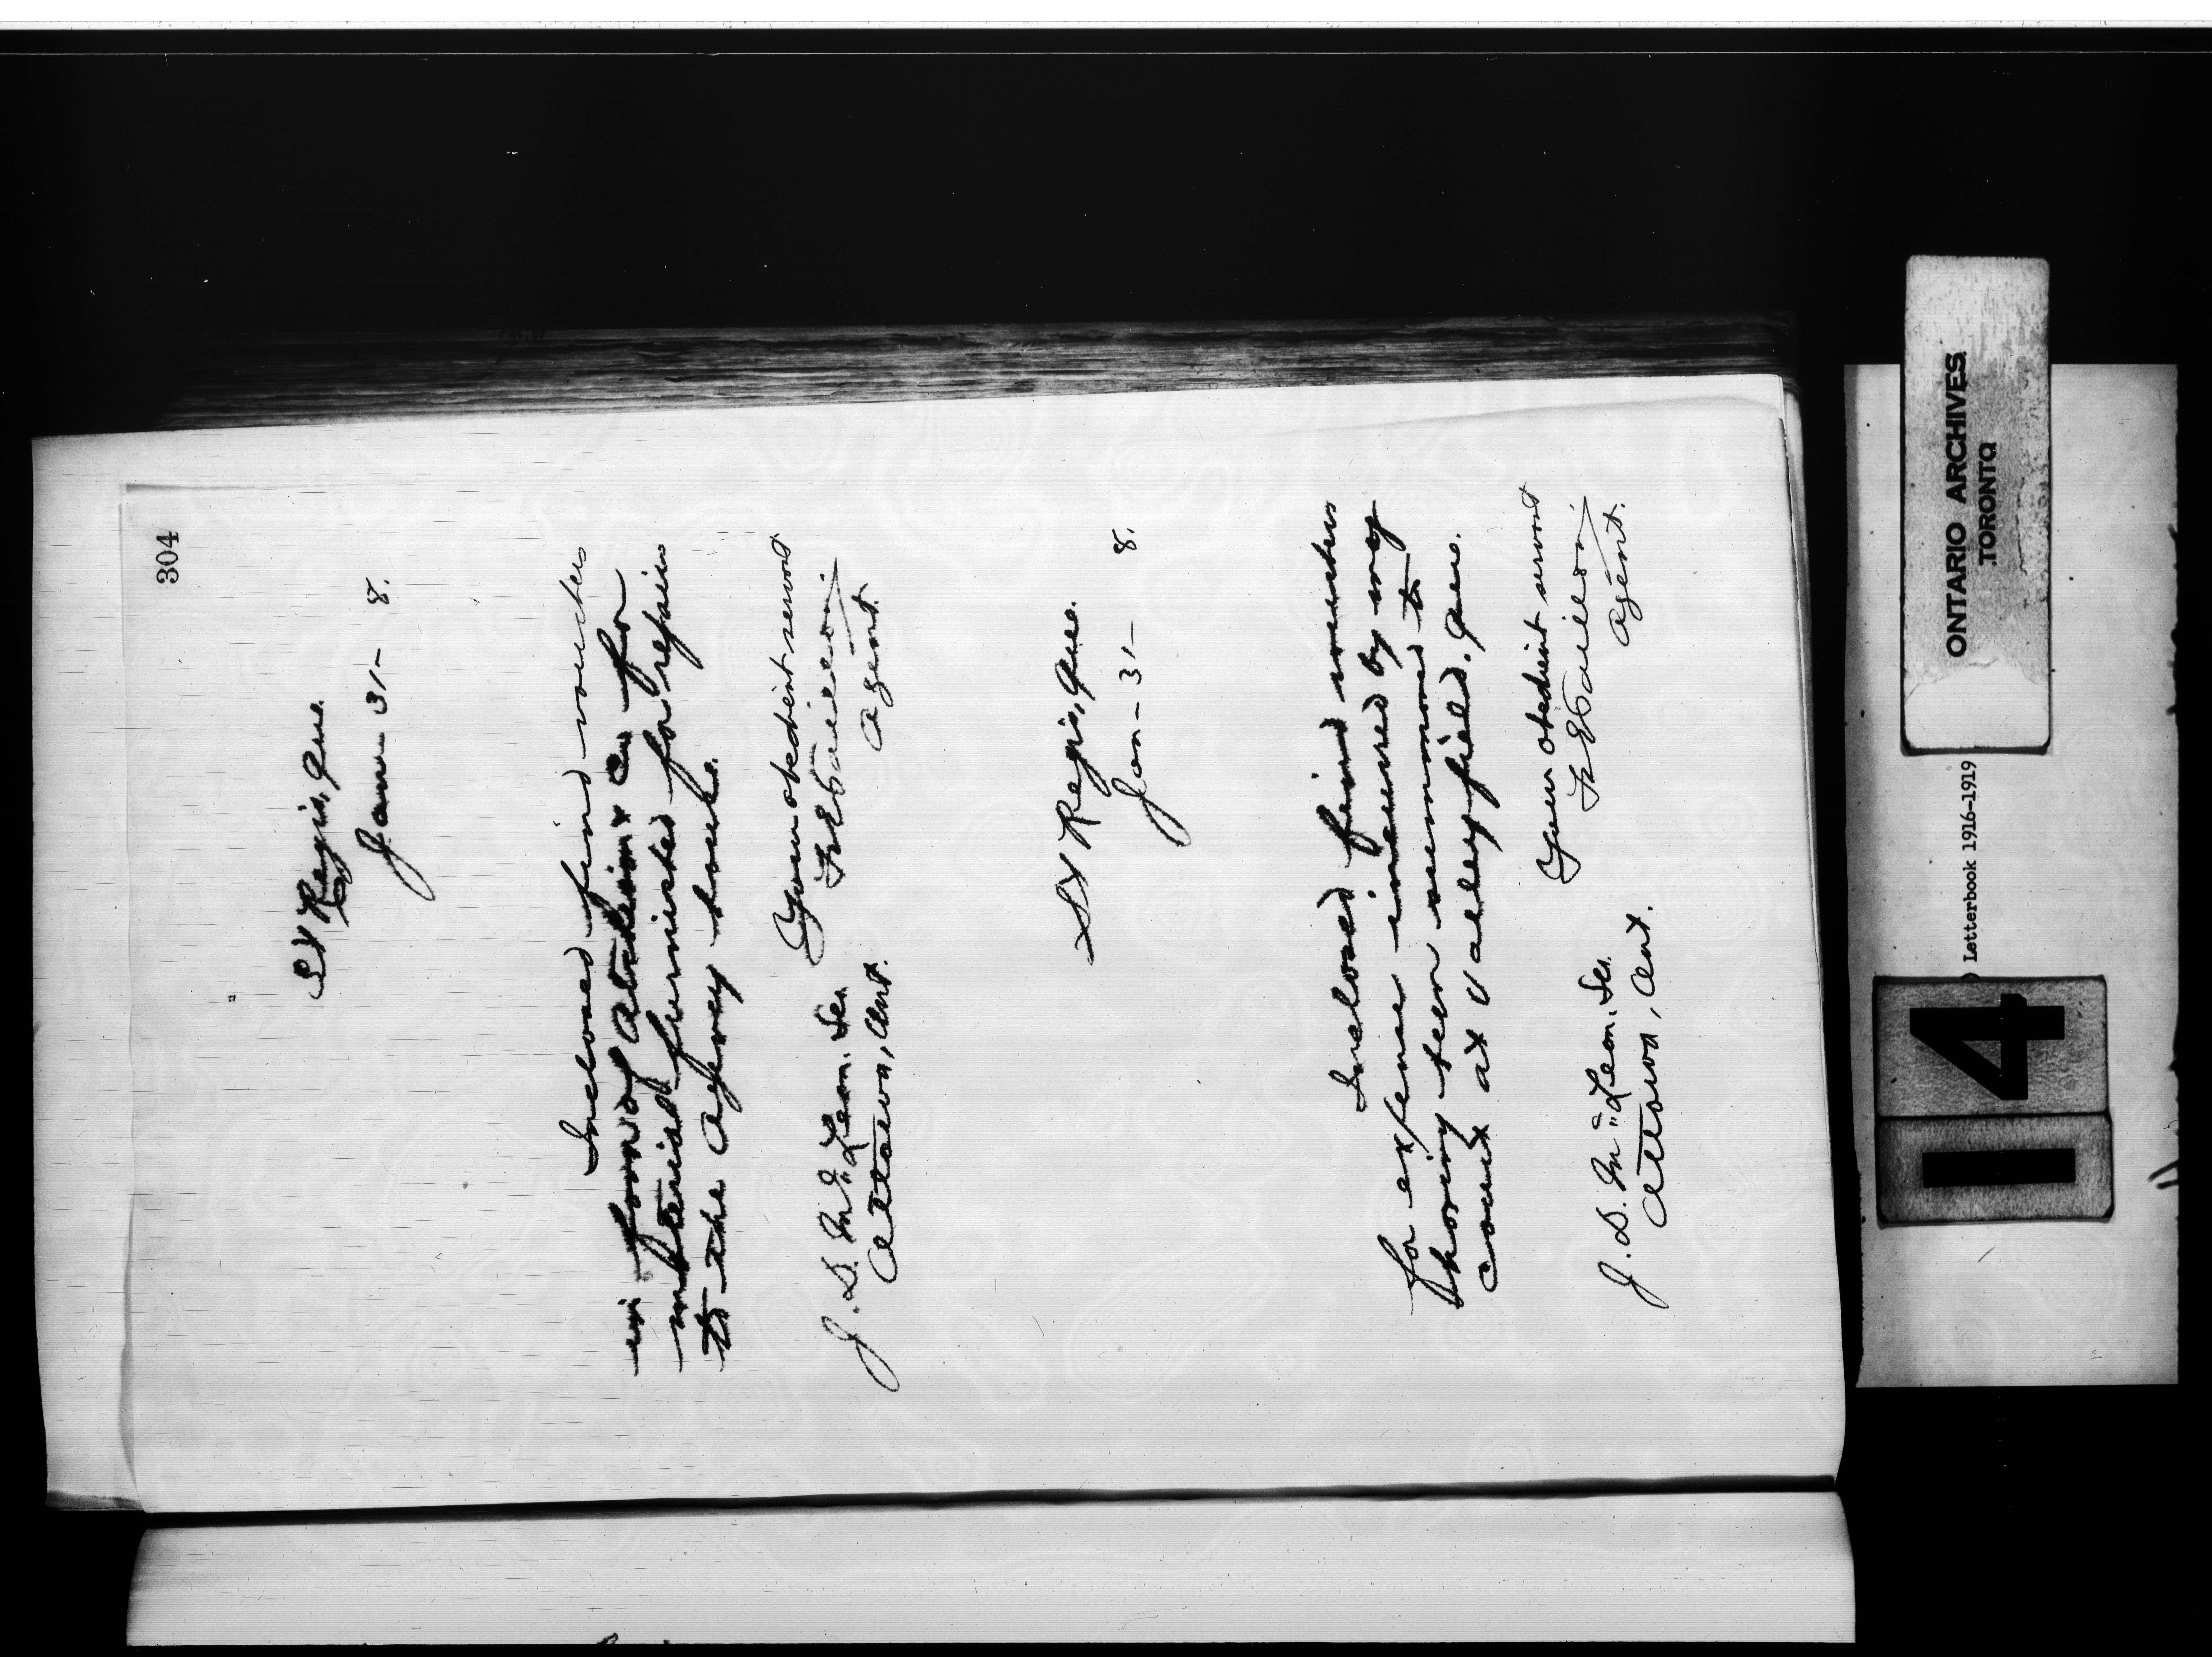 304
St Regis, Que.
Jan. 31- 8.
Inclosed find vouchers
in favor of & Co for
material furnished for repairs
to the Agency house.
Your obedient servant
Agent.
J. D. McLean. Sec.
Ottawa, Ont.
St Regis, Que.
Jan- 31- 8.
Inclosed find vouchers
for expense incurred by my
having been summoned to
Court at Valleyfield. Que.
Your obedient servant
Agent.
J. D. McLean. Sec.
Ottawa, Ont.
ONTARIO ARCHIVES
TORONTO
) Letterbook 1916-1919
14